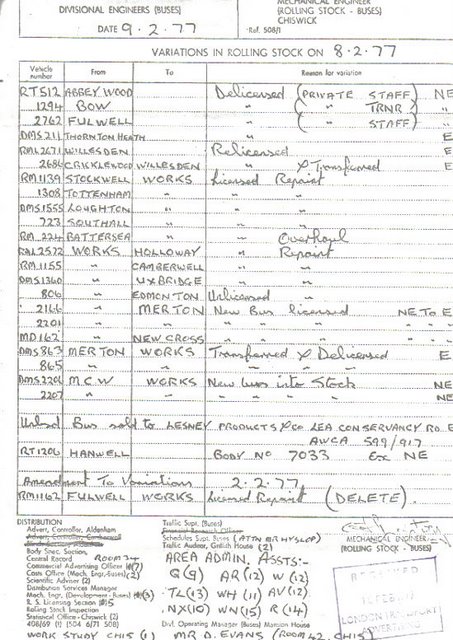 DIVISIONAL ENGINEERS (BUSES)
MECHANICAL ENGINEER
(ROLLING STOCK - BUSES)
CHISWICK
DATE 9.2.77
Ref. 508/1
VARIATIONS IN ROLLING STOCK ON 8.2.77
Vehicle number From To Reason for variation
RT512 ABBEY WOOD Delicensed (PRIVATE STAFF) NE
1294 BOW " ( " TRNR ) "
2762 FULWELL " ( " STAFF ) "
DMS211 THORNTON HEATH " E
RML2671 WILLESDEN Relicensed E
2686 CRICKLEWOOD WILLESDEN " & Transferred E
RM1139 STOCKWELL WORKS Licensed Repaint
1308 TOTTENHAM " " "
DMS1555 LOUGHTON " " "
723 SOUTHALL " " "
RM 224 BATTERSEA " " Overhaul
RML2572 WORKS HOLLOWAY " Repaint
RM1155 " CAMBERWELL " "
DMS1360 " UXBRIDGE " "
806 " EDMONTON Unlicensed "
2166 " MERTON New Bus licensed NE TO E
2201 " " " " " " " "
MD162 " NEW CROSS " " " " " "
DMS863 MERTON WORKS Transferred & Delicensed E
865 " " " " "
DMS2206 M.C.W WORKS New buses into Stock NE
2207 " " " " " " NE
Unlsd Bus sold to LESNEY PRODUCTS & CO LEA CONSERVANCY RD E
AWCA 599/917
RT1206 HANWELL BODY No 7033 Ex NE
Amendment To Variations 2.2.77
RM1162 FULWELL WORKS Licensed Repaint (DELETE).
DISTRIBUTION
Advert. Controller, Aldenham
Body Spec. Section
Central Record ROOM 34
Commercial Advertising Officer (7)
Costs Office (Mech. Engr.-Buses) (2)
Scientific Adviser (2)
Distribution Services Manager
Mech. Engr. (Development - Buses) (3)
R. S. Licensing Section 5
Rolling Stock Inspection
Statistical Office - Chiswick (2)
WORK STUDY CHIS (1)
Traffic Supt. (Buses)
Financial Research Officer
Schedules Supt. Buses (ATTN MR HYSLOP)
Traffic Auditor, Griffith House (2)
AREA ADMIN. ASSTS:-
Q (9) AR (12) W (12)
TL (13) WH (11) AV (12)
NX (10) WN (15) R (14)
Divl. Operating Manager (Buses) Mansion House
MR D. EVANS (ROOM 42
MECHANICAL ENGINEER
(ROLLING STOCK - BUSES)
RECEIVED
FEB 1977
LONDON TRANSPORT
ADVERTISING